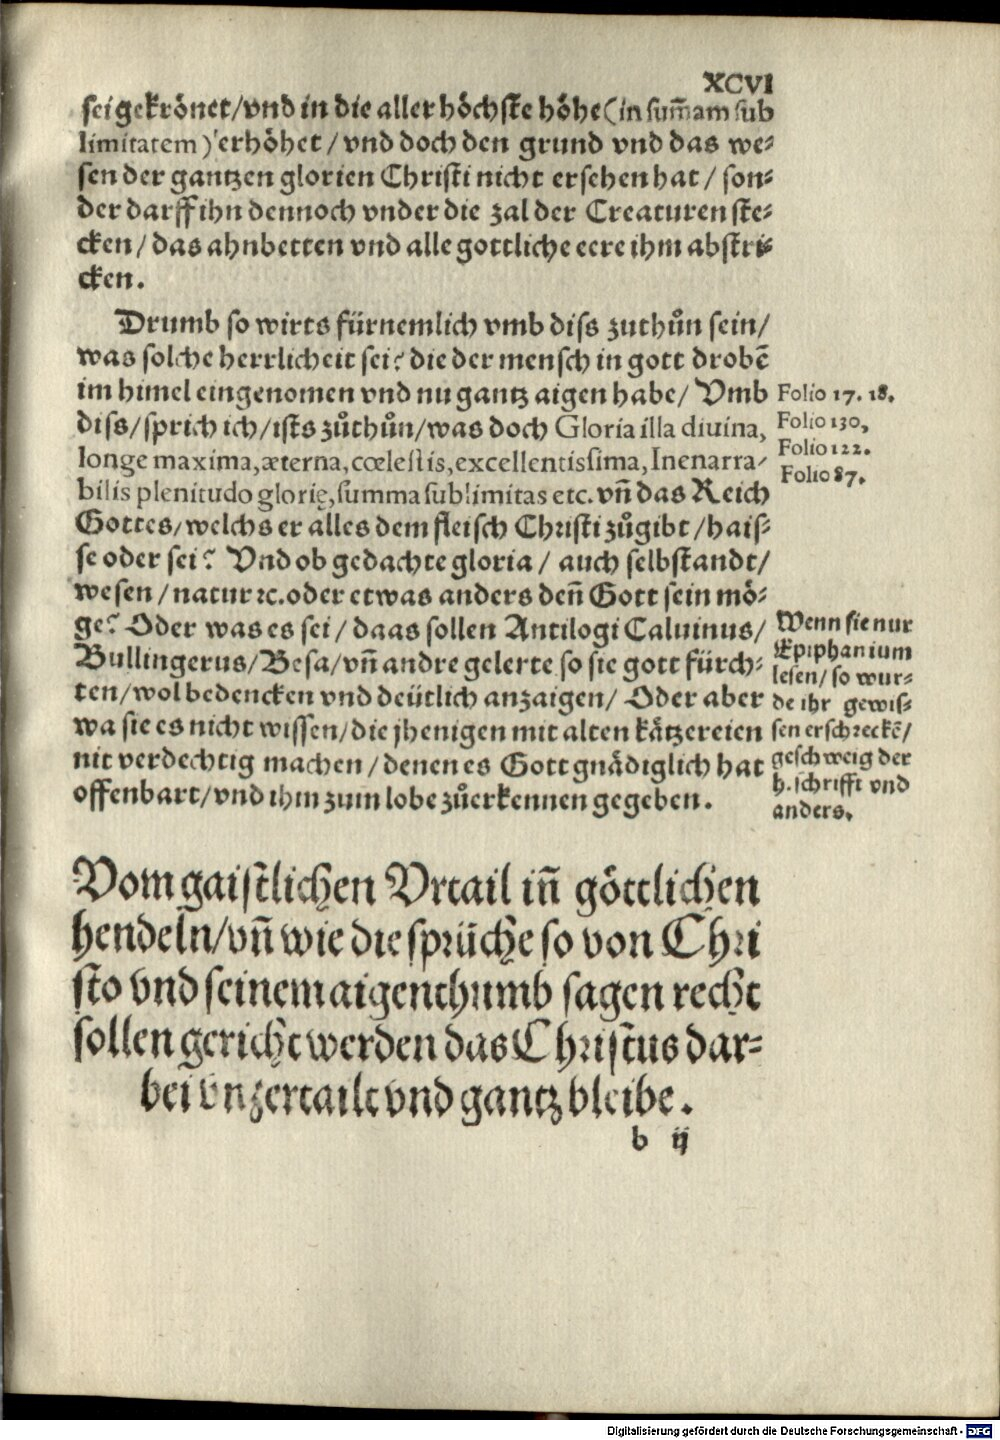 XCVI
sei gekrönet/vnd in die aller höchste höhe (in sum̄am sub
limitatem) erhöhet / vnd doch den grund vnd das we⸗
sen der gantzen glorien Christi nicht ersehen hat / son⸗
der darff ihn dennoch vnder die zal der Creaturen ste⸗
cken / das ahnbetten vnd alle gottliche eere ihm abstri⸗
cken.
Drumb so wirts fürnemlich vmb diss zuthůn sein/
was solche herrlicheit sei? die der mensch in gott drobē
im himel eingenomen vnd nu gantz aigen habe/ Vmb
diss/sprich ich/ists zůthůn/was doch Gloria illa diuina,
longe maxima, æterna, cœlestis, excellentissima, Inenarra-
bilis plenitudo glorię, summa sublimitas etc. vn̄ das Reich
Gottes/welchs er alles dem fleisch Christi zůgibt/hais⸗
se oder sei? Vnd ob gedachte gloria / auch selbstandt/
wesen / natur ꝛc. oder etwas anders den̄ Gott sein mö⸗
ge? Oder was es sei / daas sollen Antilogi Caluinus/
Bullingerus/Besa/vn̄ andre gelerte so sie gott fürch⸗
ten/wol bedencken vnd deütlich anzaigen/ Oder aber
wa sie es nicht wissen/die jhenigen mit alten kätzereien
nit verdechtig machen/denen es Gott gnädiglich hat
offenbart/vnd ihm zum lobe zůerkennen gegeben.
Folio 17. 18.
Folio 130,
Folio 122.
Folio 87.
Wenn sie nur
Epiphanium
lesen/ so wur⸗
de ihr gewis⸗
sen erschreckē/
geschweig der
h. schrifft vnd
anders.
Vom gaistlichen Vrtail in̄ göttlichen
hendeln/vn̄ wie die sprüche so von Chri
sto vnd seinem aigenthumb sagen recht
sollen gericht werden das Christus dar⸗
bei vnzertailt vnd gantz bleibe.
b ij
Digitalisierung gefördert durch die Deutsche Forschungsgemeinschaft - DFG